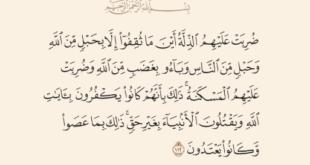 بِسْمِ اللَّهِ الرَّحْمَٰنِ الرَّحِيمِ
ضُرِبَتْ عَلَيْهِمُ الذِّلَّةُ أَيْنَ مَا ثُقِفُوٓا۟ إِلَّا بِحَبْلٍ مِّنَ اللَّهِ
وَحَبْلٍ مِّنَ النَّاسِ وَبَآءُو بِغَضَبٍ مِّنَ اللَّهِ وَضُرِبَتْ
عَلَيْهِمُ الْمَسْكَنَةُ ۚ ذَٰلِكَ بِأَنَّهُمْ كَانُوا۟ يَكْفُرُونَ بِـَٔايَٰتِ
اللَّهِ وَيَقْتُلُونَ الْأَنۢبِيَآءَ بِغَيْرِ حَقٍّ ۚ ذَٰلِكَ بِمَا عَصَوا۟
وَّكَانُوا۟ يَعْتَدُونَ ١١٢